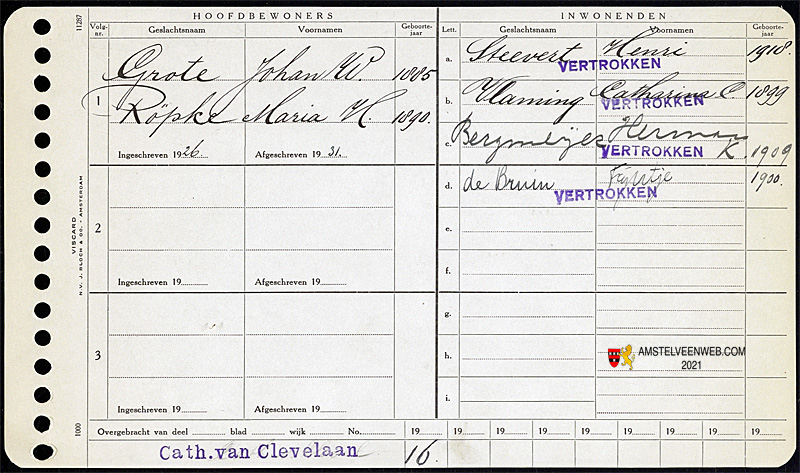 HOOFDBEWONERS
INWONENDEN
11287
Volg-
nr.
Geslachtsnaam
Voornamen
Geboorte-
jaar
Lett.
Geslachtsnaam
Voornamen
Geboorte-
jaar
1
Grote Johan W. 1885
Röpke Maria H. 1890.
Ingeschreven 1926. Afgeschreven 1931.
2
Ingeschreven 19 Afgeschreven 19
3
Ingeschreven 19 Afgeschreven 19
a. Steevert Henri 1918.
VERTROKKEN
b. Vlaming Catharina C. 1899
VERTROKKEN
c. Herman
VERTROKKEN K. 1909
d. de Bruin Fijtje 1900.
VERTROKKEN
e.
f.
g.
h.
i.
AMSTELVEENWEB.COM
2021
VISCARD
N.V. J. BLOCH & CO. - AMSTERDAM
1000
Overgebracht van deel blad wijk No. 19 19 19 19 19 19 19 19 19 19
Cath. van Clevelaan 16.